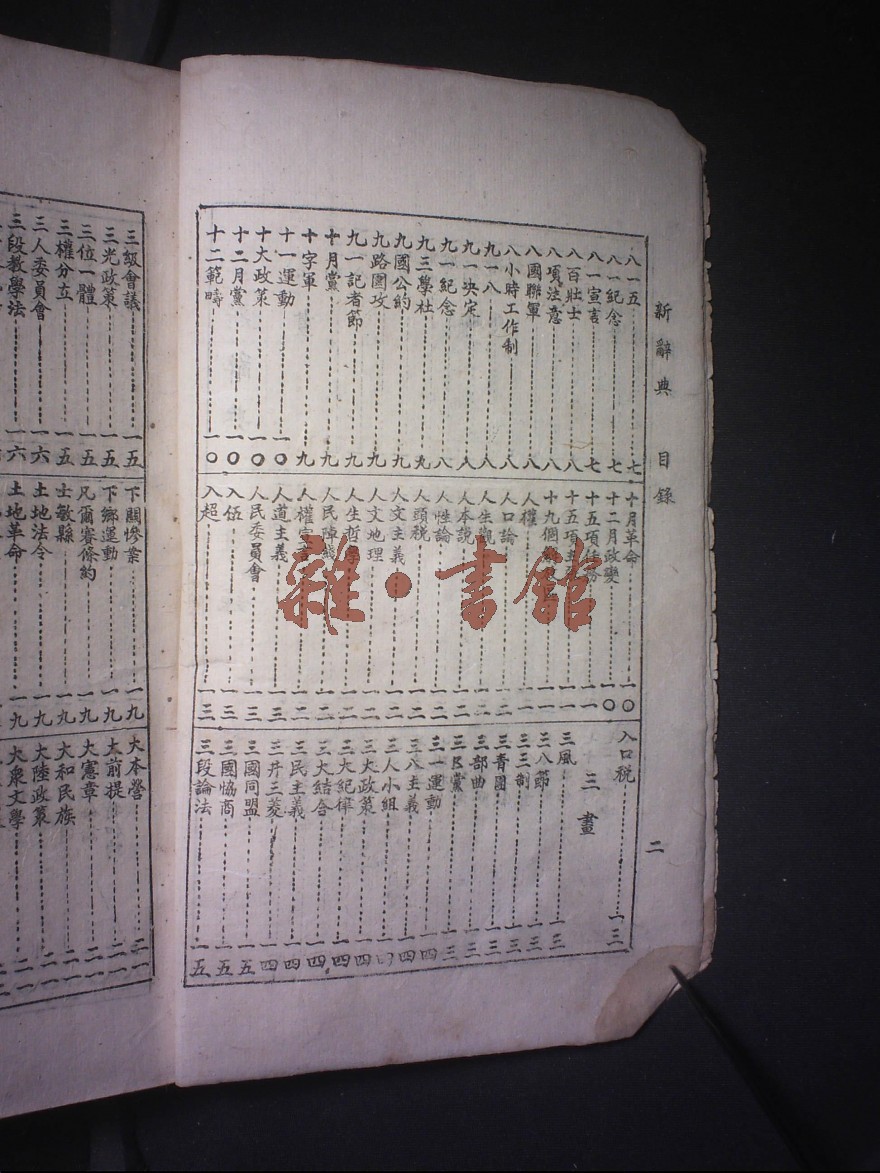 新辭典 目錄 二
八一五 七
八一紀念 七
八一宣言 七
八百壯士 八
八項注意 八
八國聯軍 八
八小時工作制 八
九一八 八
九一決定 八
九一紀念 八
九三學社 九
九國公約 九
九路圍攻 九
九一記者節 九
十月黨 九
十字軍 九
十一運動 一〇
十大政策 一〇
十二月黨 一〇
十二範疇 一〇
十月革命 一〇
十二月政變 一〇
十五項任務 一一
十五項 一一
十九個 一一
人權 一一
人口論 一二
人生觀 一二
人本說 一二
人性論 一二
人頭稅 一二
人文主義 一二
人文地理 一二
人生哲 一二
人民陣綫 一二
人權宣言 一二
人道主義 一三
人民委員會 一三
入伍 一三
入超 一三
入口稅 一三
三畫
三風 一三
三八節 一三
三三制 一三
三青團 一三
三部曲 一三
三K黨 一三
三一運動 一四
三八主義 一四
三人小組 一四
三大政策 一四
三大紀律 一四
三大結合 一四
三民主義 一四
三井三菱 一四
三國同盟 一五
三國協商 一五
三段論法 一五
三級會議 一五
三光政策 一五
三位一體 一五
三權分立 一五
三人委員會 一六
三段教學法 一六
下關慘案 一九
下鄉運動 一九
凡爾賽條約 一九
士敏縣 一九
土地法令 一九
土地革命 一九
大本營 二一
大前提 二一
大憲章 二一
大和民族 二一
大陸政策 二一
大衆文學 二一
雜·書館